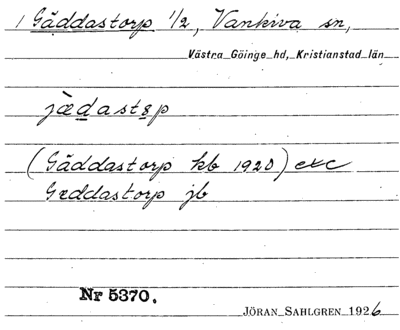 1 Gäddastorp 1/2, Vankiva sn,
Västra Göinge hd, Kristianstad län
jæ̀dast8p
(Gäddastorp kb 1920) etc
Gæddastorp jb
Nr 5370.
JÖRAN SAHLGREN 1926